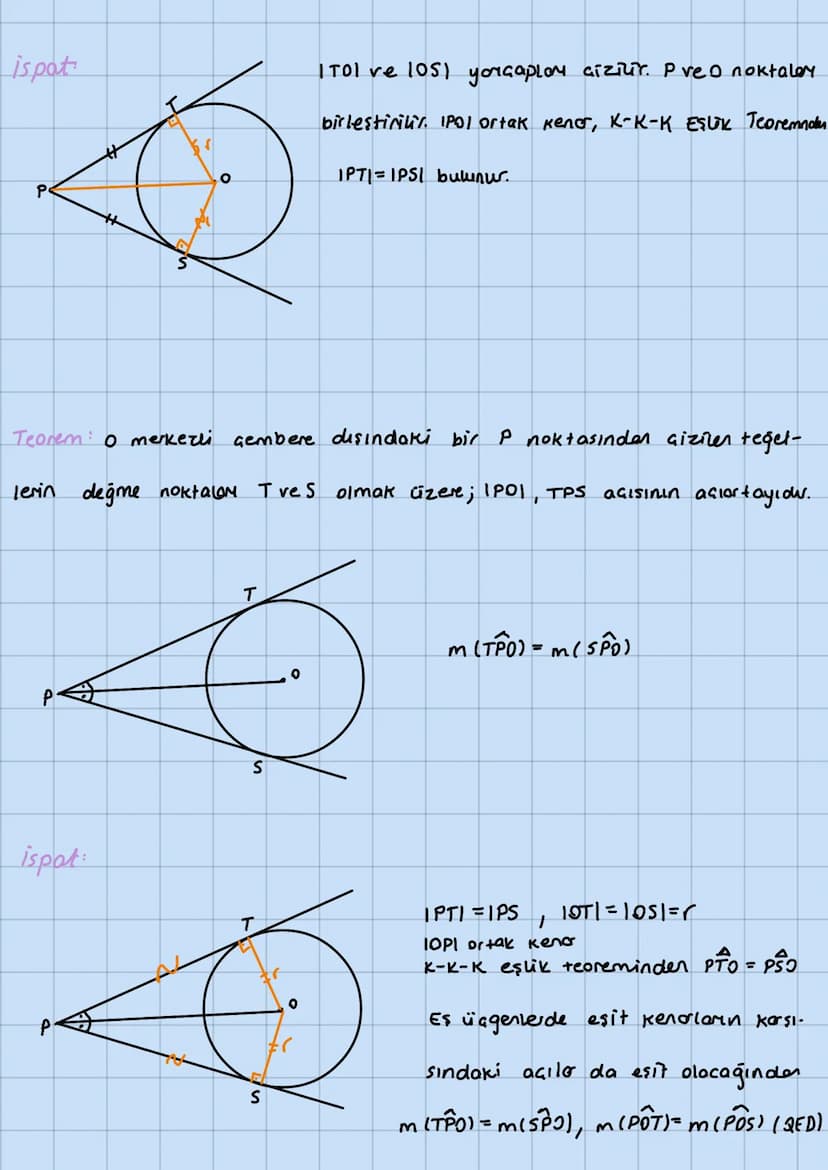 ispat:
|TO| ve |OS| yarıçapları çizilir. P ve O noktaları
birleştirilir. |PO| ortak kenar, K-K-K Eşlik Teoreminden
|PT|=|PS| bulunur.
T
r
P
O
r
S
Teorem: O merkezli çembere dışındaki bir P noktasından çizilen teğet-
lerin değme noktaları T ve S olmak üzere; |PO|, TPS açısının açıortayıdır.
T
m(TP̂O) = m(SP̂O)
O
P
S
ispat:
|PT| = |PS , |OT| = |OS| = r
|OP| ortak kenar
K-K-K eşlik teoreminden PT̂O = PŜO
Eş üçgenlerde eşit kenarların karşı-
sındaki açılar da eşit olacağından
m(TP̂O) = m(SP̂O), m(PÔT) = m(PÔS) (QED)
T
r
O
P
r
S